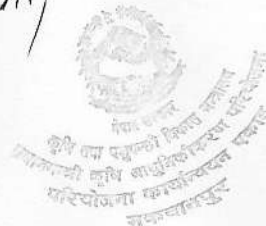 नेपाल सरकार
कृषि तथा पशुपन्छी विकास मन्त्रालय
प्रधानमन्त्री कृषि आधुनिकीकरण परियोजना
परियोजना कार्यान्वयन एकाई
मकवानपुर